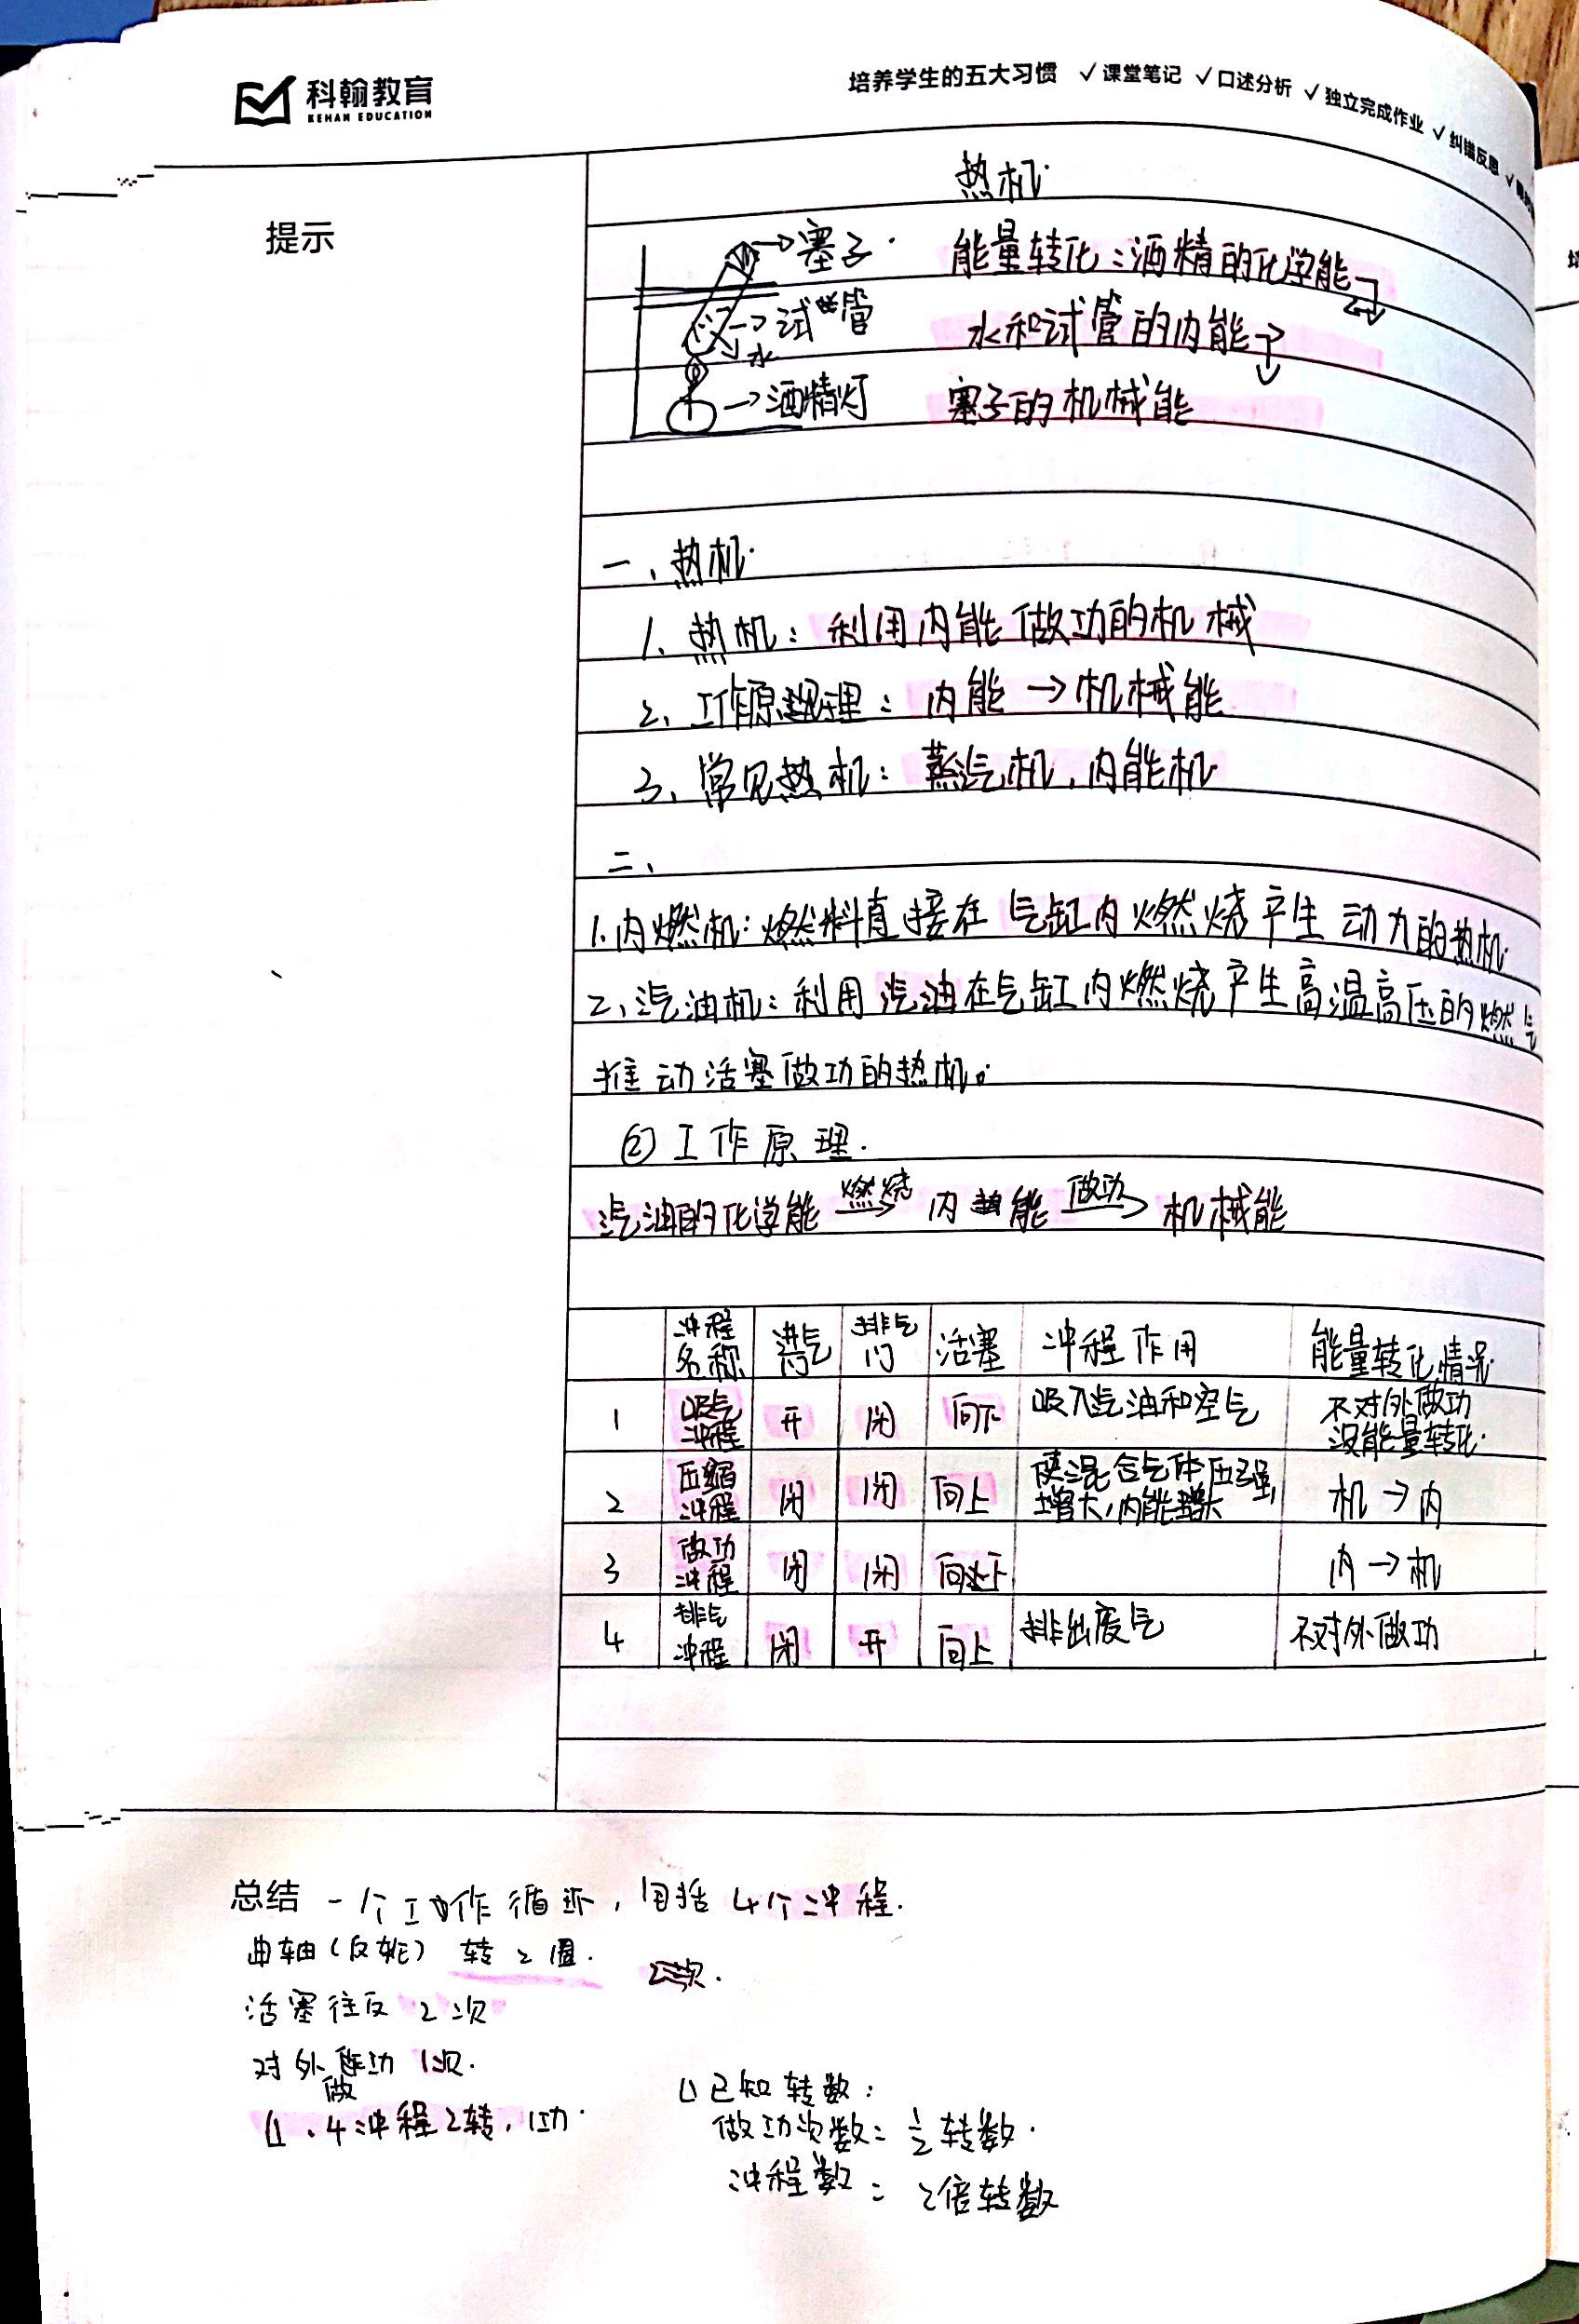 科翰教育
KEHAN EDUCATION
培养学生的五大习惯 ✓课堂笔记 ✓口述分析 ✓独立完成作业 ✓纠错反思 ✓
提示
热机
→塞子
→试管
→水
→酒精灯
能量转化:酒精的化学能→
水和试管的内能→
塞子的机械能
一、热机
1、热机:利用内能做功的机械
2、工作原理:内能→机械能
3、常见热机:蒸汽机、内能机
二、
1.内燃机:燃料直接在气缸内燃烧产生动力的热机.
2、汽油机:利用汽油在气缸内燃烧产生高温高压的燃气
推动活塞做功的热机。
② 工作原理.
汽油的化学能 燃烧→ 内能 做功→ 机械能
冲程名称 进气门 排气门 活塞 冲程作用 能量转化情况
1 吸气冲程 开 闭 向下 吸入汽油和空气 不对外做功 没能量转化.
2 压缩冲程 闭 闭 向上 使混合气体压强增大,内能增大 机→内
3 做功冲程 闭 闭 向下 内→机
4 排气冲程 闭 开 向上 排出废气 不对外做功
总结 一个工作循环,包括4个冲程.
曲轴( ) 转2圈.
2次.
活塞往反2次
对外做功1次.
4冲程2转,1功.
已知转数:
做功次数=½转数.
冲程数=2倍转数